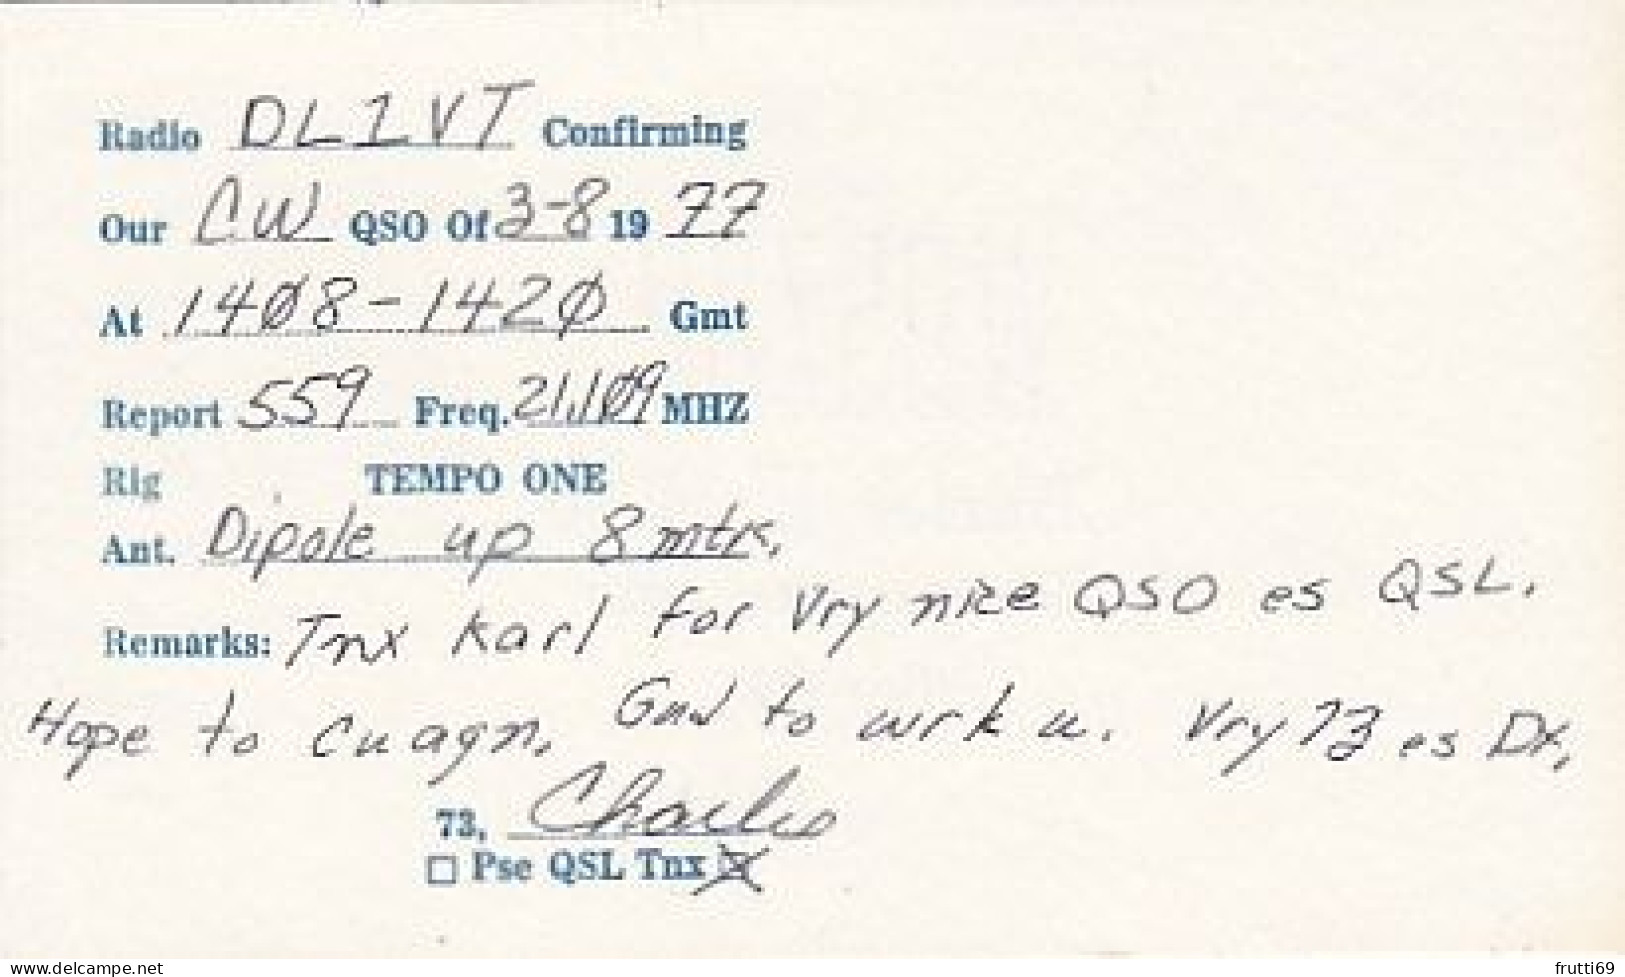 Radio DL1VT Confirming
Our CW QSO Of 3-8 19 77
At 14Ø8-142Ø Gmt
Report 559 Freq. 21.1Ø9 MHZ
Rig TEMPO ONE
Ant. Dipole up 8 mtr.
Remarks: Tnx Karl for Vry nice QSO es QSL.
Hope to cuagn. Gud to wrk u. Vry 73 es Dx.
73, Charlie
☐ Pse QSL Tnx ☒
www.delcampe.net
frutti69